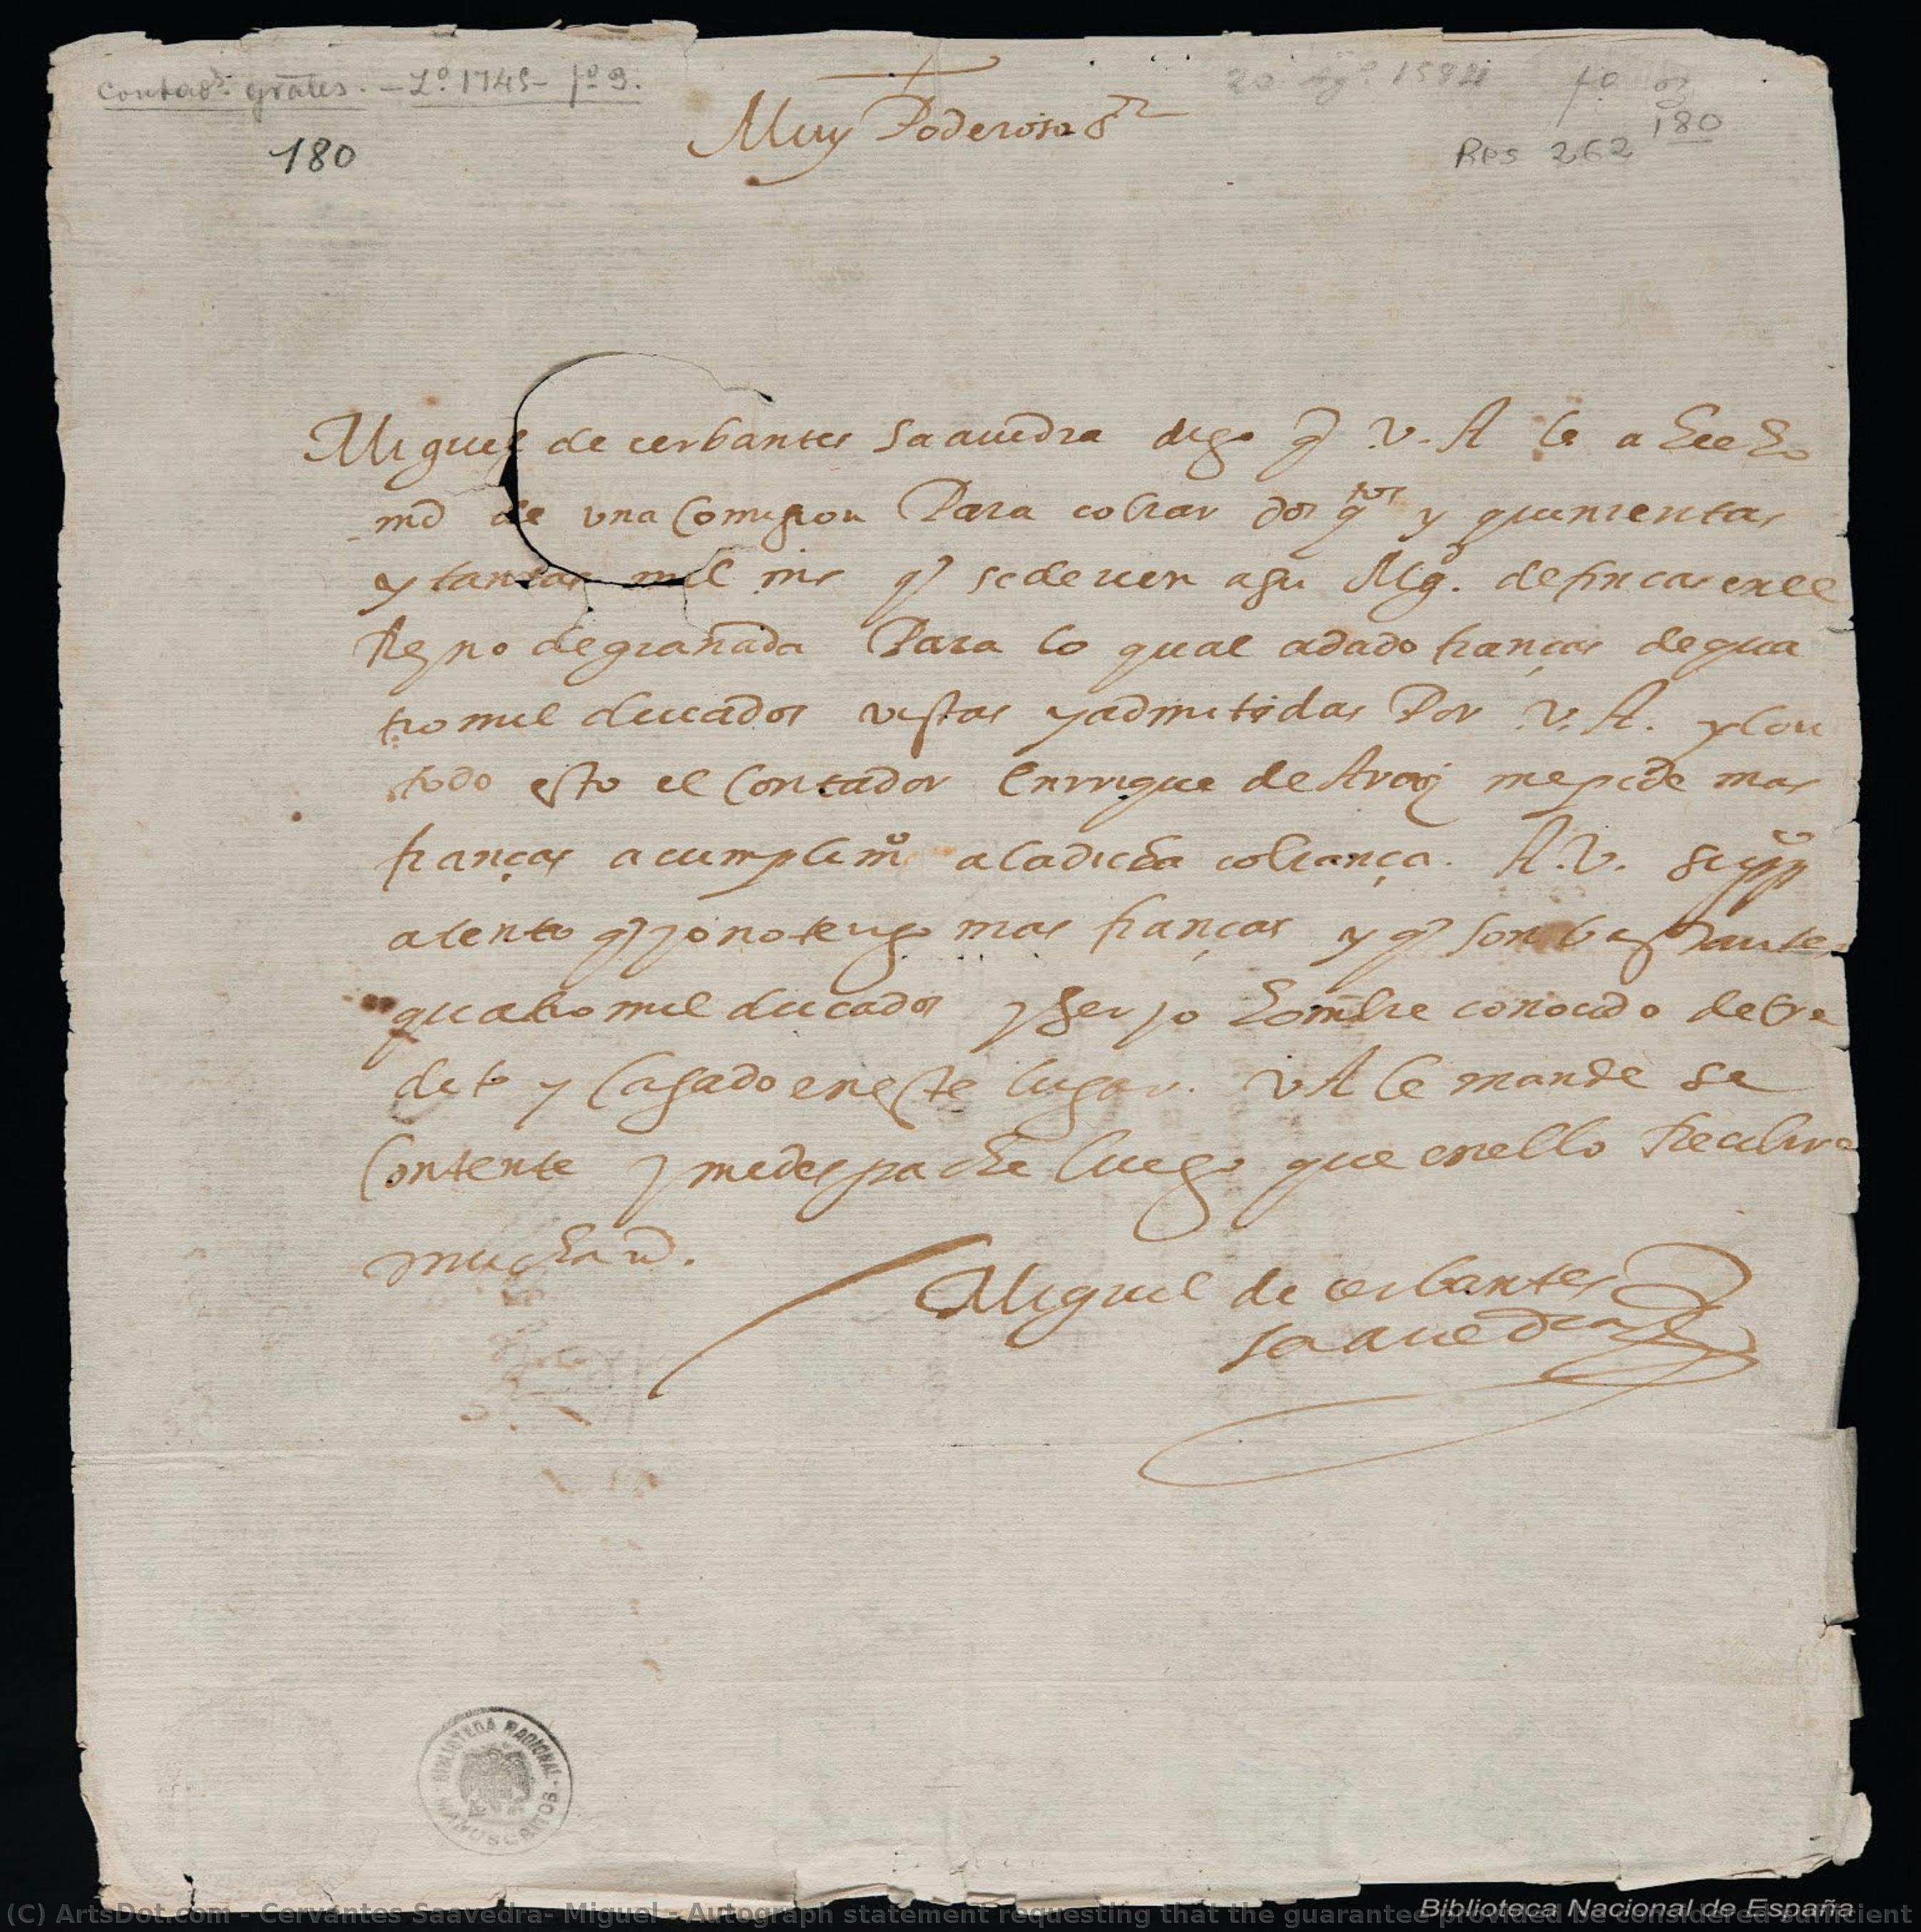 Contad.ª grāles. - L.º 1745 - f.º 9.
20 Ag.º 1594
180
180
Res 262
Muy Poderoso S.or
Miguel de cerbantes Saauedra digo q̃ V. A le a hecho
md de una Comision Para cobrar dos q.tos y quinientas
y tantas mil mrs q̃ se deuen a su Mg.d de fincas en el
Reyno de granada Para lo qual a dado fianças de qua
tro mil ducados vistas y admitidas Por V. A. y Con
todo esto el Contador Enrrique de Araiz me pide mas
fianças a cumplim.o a la dicha cobrança. A. V. A supp.co
atento q̃ yo no tengo mas fianças y q̃ Son bastantes
quatro mil ducados y Ser yo hombre conocido de cre
dito y Casado en este lugar. V A le mande se
Contente y me despache luego que en ello Recibire
mucha md.
Miguel de cerbantes
saauedra
BIBLIOTECA NACIONAL
MANUSCRITOS
Biblioteca Nacional de España
(C) ArtsDot.com - Cervantes Saavedra- Miguel - Autograph statement requesting that the guarantee provided be considered sufficient